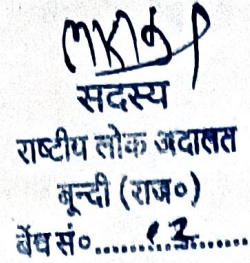 सदस्य
राष्टीय लोक अदालत
बून्दी (राज०)
बेंच सं०.......12.......